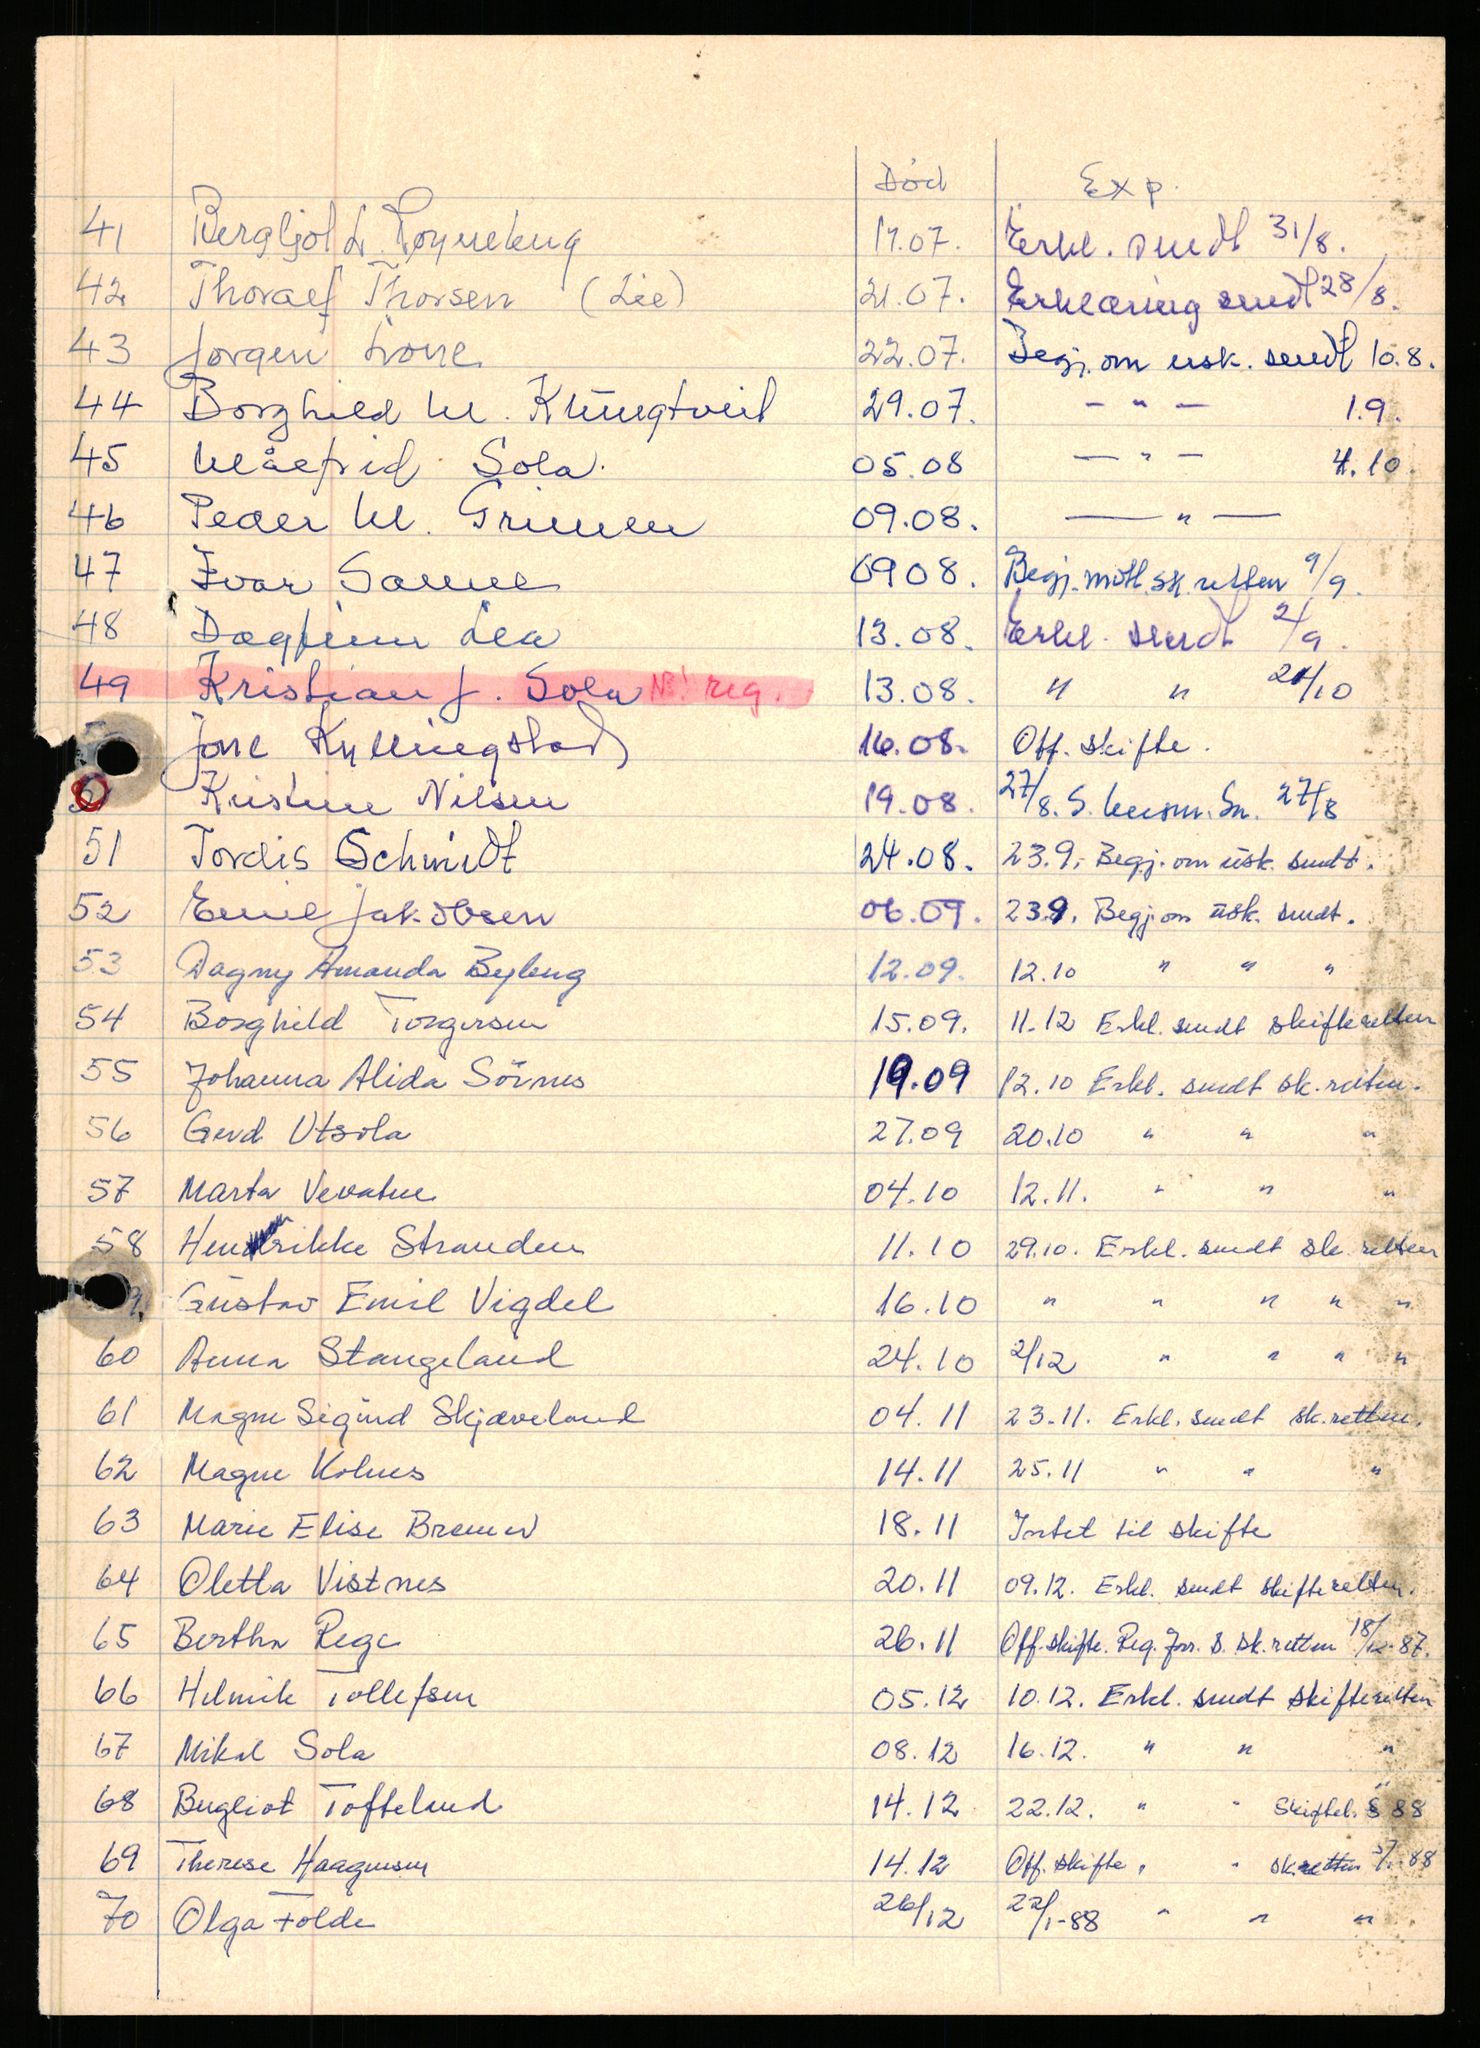 Død Exp.
41 Bergljot L. 17.07. Erkl. sendt 31/8.
42 Thoralf Thorsen (Lie) 21.07. Erklæring sendt 28/8.
43 Jørgen Lione 22.07. Begj. om usk. sendt 10.8.
44 Borghild M. 29.07. — " — 1.9.
45 Målfrid Sola. 05.08 — " — 4.10.
46 Peder M. Grimen 09.08. — " —
47 Ivar Sømme 09 08. Begj. mott. sk. retten 9/9.
48 Dagfinn Lea 13.08. Erkl. sendt 2/9.
49 Kristian J. Sola N! reg. 13.08. " " 20/10
Jone Kyllingstad 16.08. Off. skifte.
Kristine Nilsen 19.08. 27/8. S. 27/8
51 Tordis Schmidt 24.08. 23.9. Begj. om usk. sendt.
52 Emil Jakobsen 06.09. 23.9. Begj om usk. sendt.
53 Dagny Amanda Byberg 12.09. 12.10 " " "
54 Borghild Torgersen 15.09. 11.12 Erkl. sendt skifteretten
55 Johanna Alida Sörnes 19.09 12.10 Erkl. sendt sk. retten.
56 Gerd Utsola 27.09 20.10 " " "
57 Marta Vevatne 04.10 12.11. " " "
58 Hendrikke Stranden 11.10 29.10. Erkl. sendt sk. retten
9. Gustav Emil Vigdel 16.10 " " " " "
60 Anna Stangeland 24.10 2/12 " " " "
61 Magne Sigurd Skjæveland 04.11 23.11. Erkl. sendt sk. retten.
62 Magne Kolnes 14.11 25.11 " " "
63 Marie Elise Bremer 18.11 Intet til skifte
64 Oletta Vistnes 20.11 09.12. Erkl. sendt skifteretten.
65 Bertha Rege 26.11 Off. skifte. Reg. forr. s. sk. retten 18/12-87.
66 Helmik Tollefsen 05.12 10.12. Erkl. sendt skifteretten
67 Mikal Sola 08.12 16.12. " " "
68 Bergliot Tofteland 14.12 22.12. " " " Skiftel. § 88
69 Therese Haagensen 14.12 Off. skifte " " sk retten 5/1-88
70 Olga Folde 26/12 22/1-88 " " "